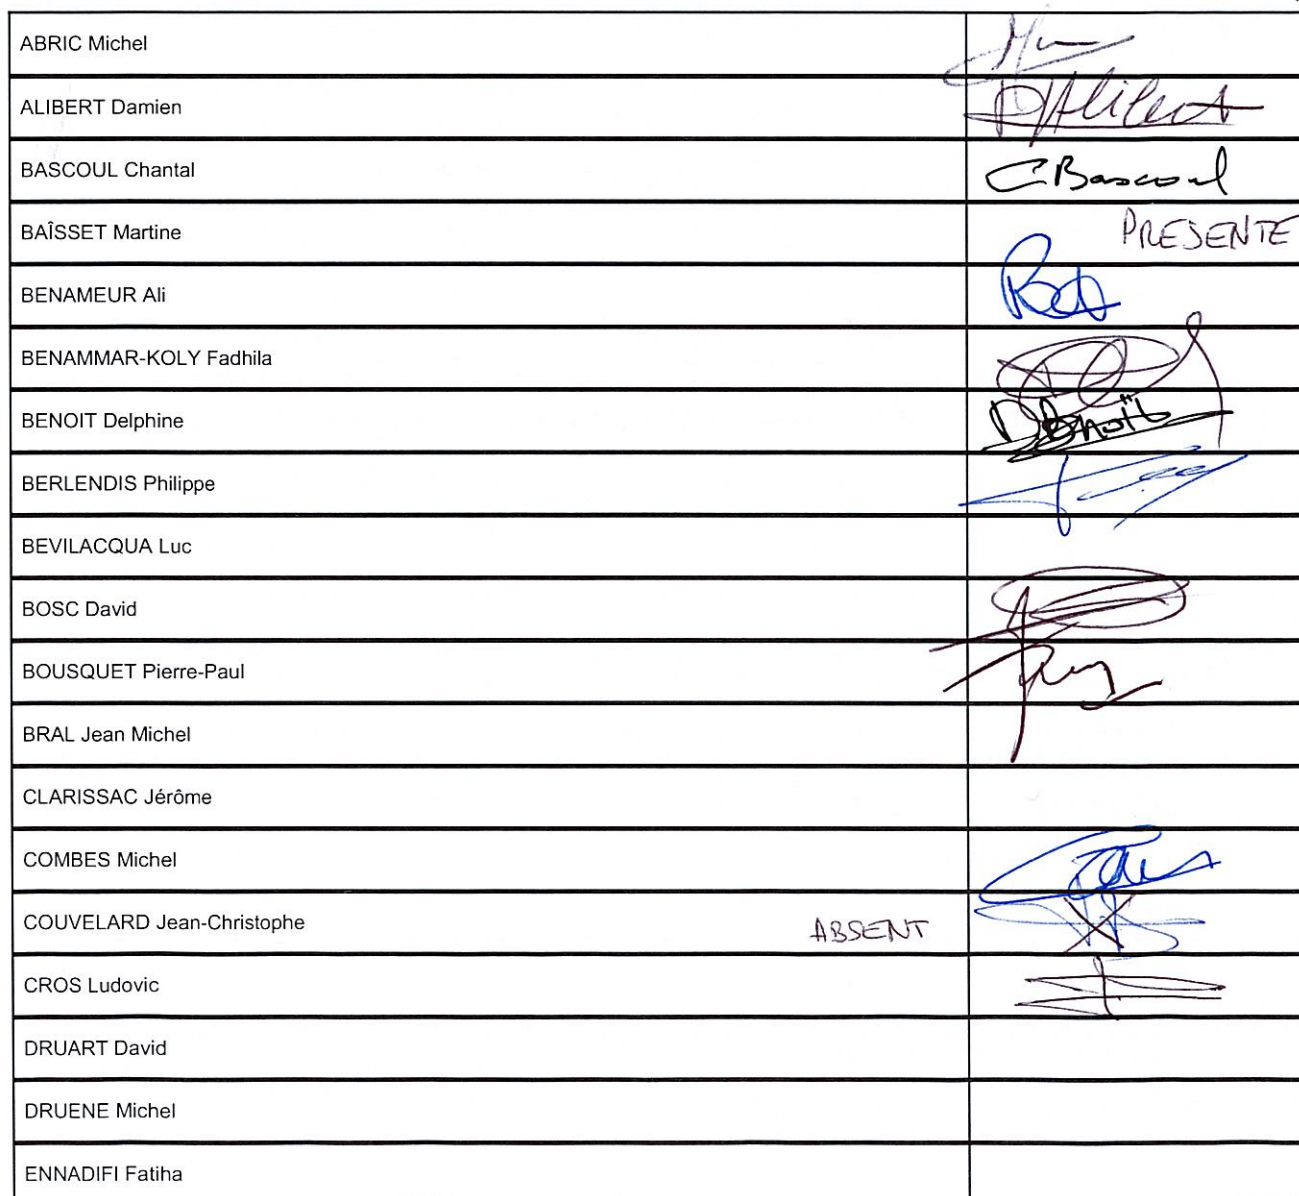 ABRIC Michel
ALIBERT Damien DAlibert
BASCOUL Chantal C Bascoul
BAÎSSET Martine PRESENTE
BENAMEUR Ali
BENAMMAR-KOLY Fadhila
BENOIT Delphine DBenoït
BERLENDIS Philippe
BEVILACQUA Luc
BOSC David
BOUSQUET Pierre-Paul
BRAL Jean Michel
CLARISSAC Jérôme
COMBES Michel
COUVELARD Jean-Christophe ABSENT
CROS Ludovic
DRUART David
DRUENE Michel
ENNADIFI Fatiha